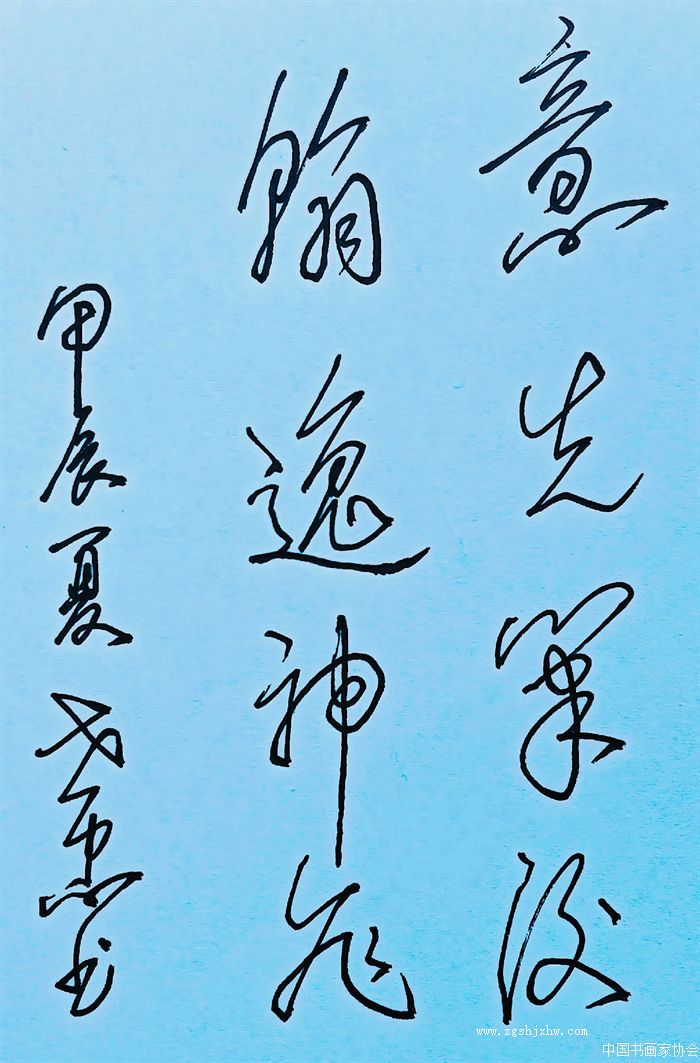 意先筆後
翰逸神飛
甲辰夏 书
www.zgshjxhw.com
中国书画家协会